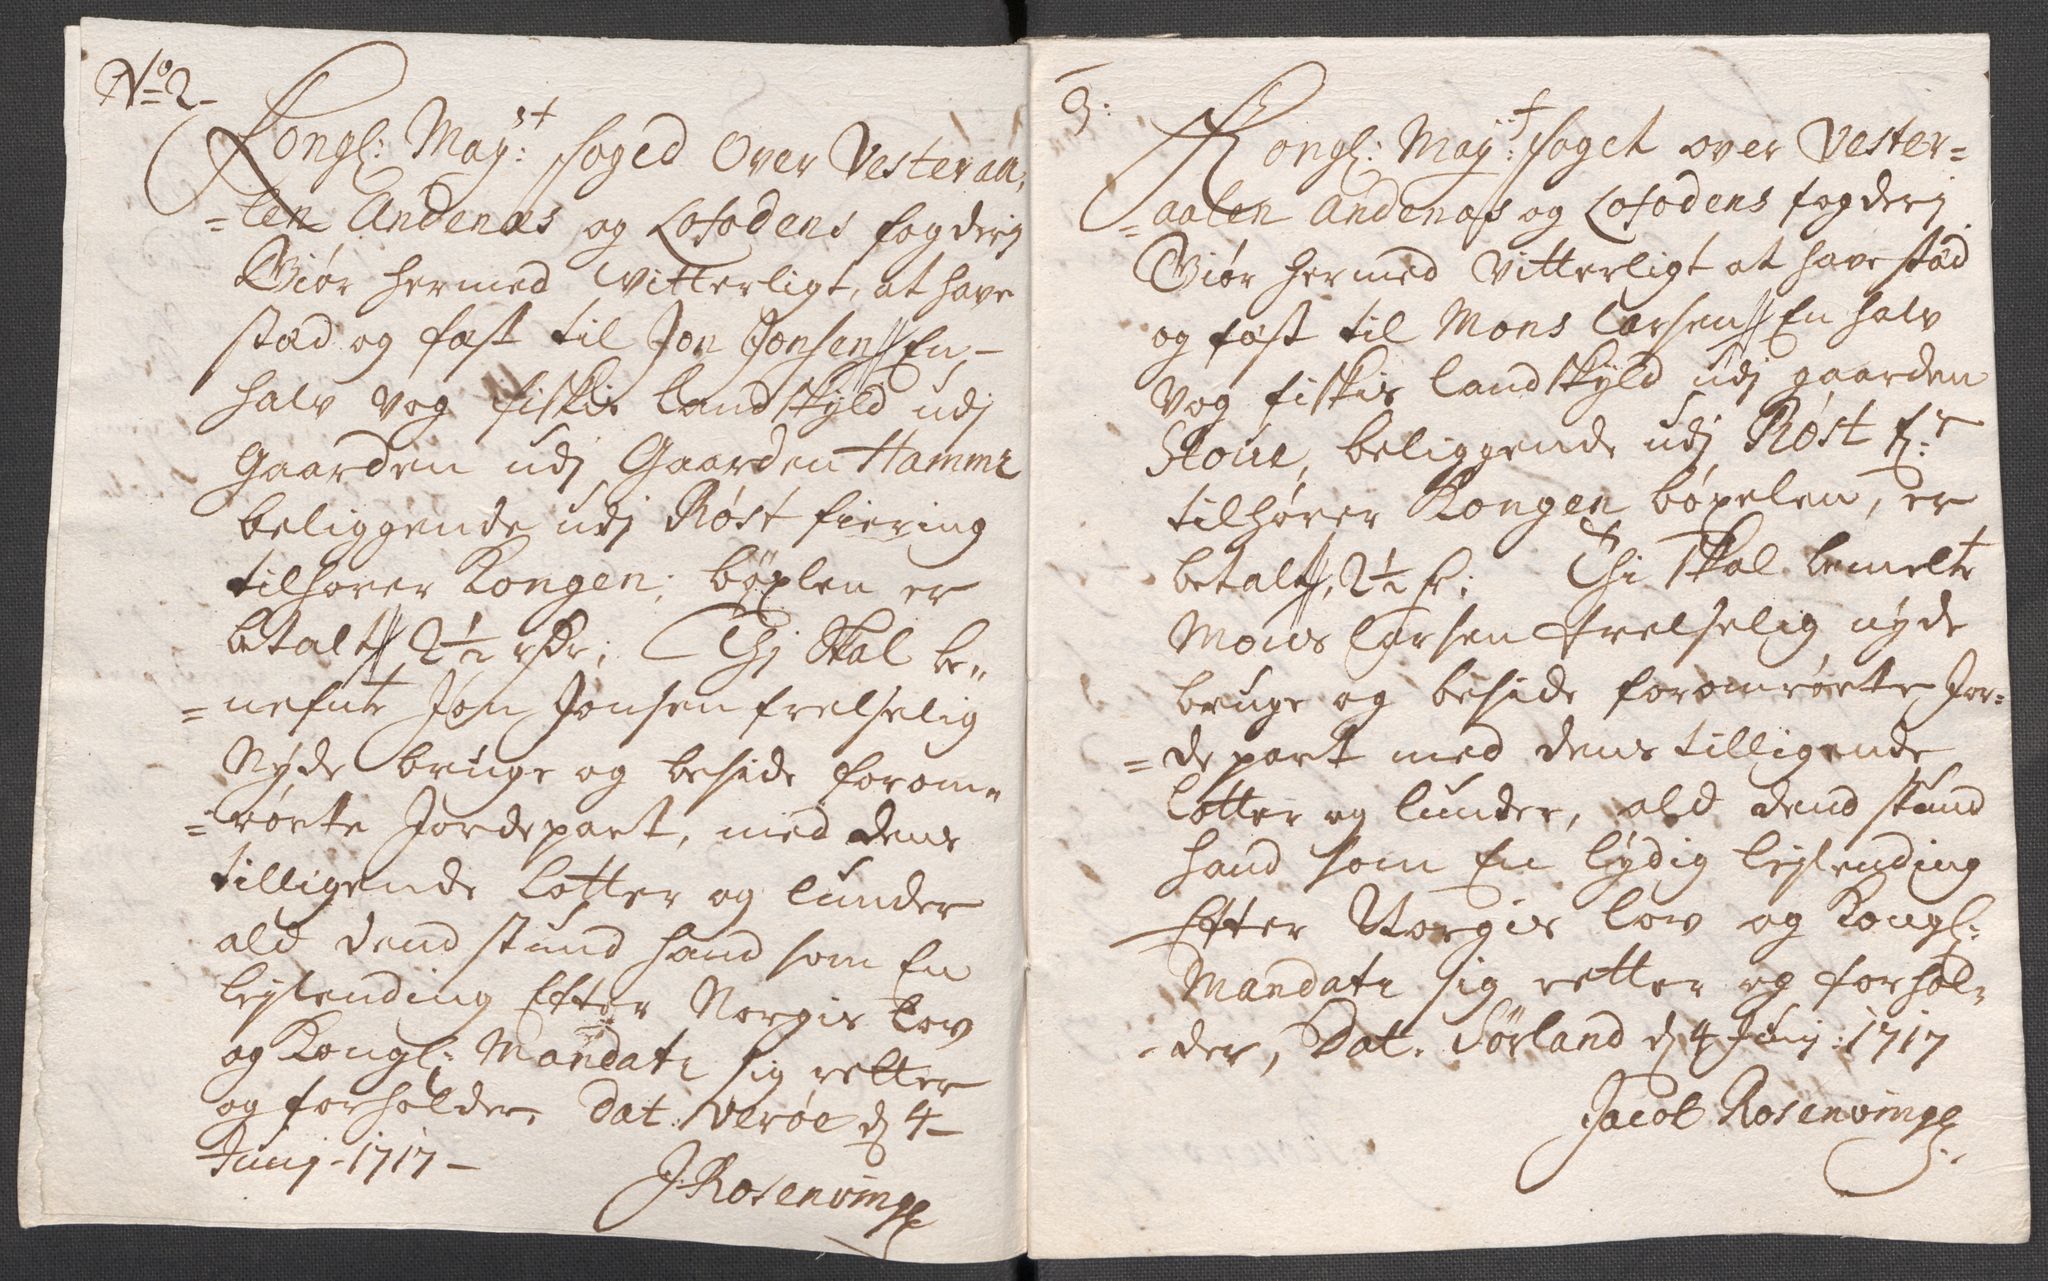 No 2
Kongl: May:st foged Over Vesteraa-
=len Andenæs og Lofodens fogderj
Giör hermed vitterligt, at have
stæd og fæst til Jon Jonsen // En
halv vog fiskis landskyld udj
Gaarden udj Gaarden Hamme
beliggende udj Røst fiering
tilhører Kongen; böxlen er
betalt // 2½ rdr; Thj skal be=
=nefnte Jon Jonsen frelselig
Nyde bruge og beside forom=
=rörte Jordepart, med dens
tilligende lotter og lunder
ald dend stund hand som En
leylending Efter Norgis lov
og Kongl: Mandate sig retter
og forholder, Dat. Verøe d 4
Junij 1717
J Rosenvinge
3:
Kongl: May:st foget over Vester=
=aalen Andenæs og Lofodens fogderj
Giör hermed Vitterligt at have stæd
og fæst til Mons Larsen // En halv
Vog fiskis landskyld udj gaarden
beliggende udj Røst f:r
tilhører Kongen böxelen, er
betalt // 2½ r: Thi skal bemelte
Mons Larsen frelselig nyde
bruge og beside foromrörte Jor=
=depart med dens tilligende
lotter og lunder, ald dend stund
hand som En lydig leylending
Efter Norgis lov og Kongl:
Mandate sig retter og forhol=
der, Dat. Sörland d 4 Junj: 1717
Jacob Rosenvinge